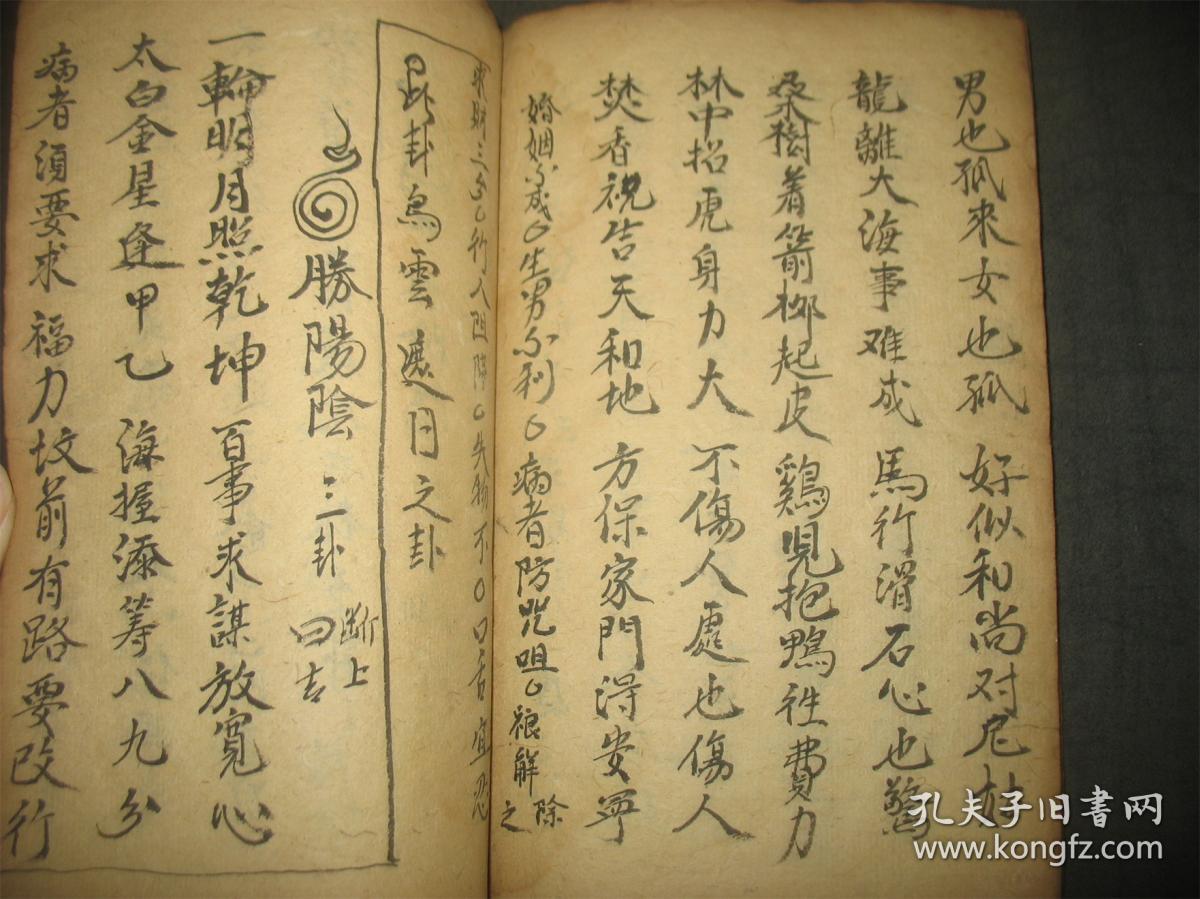 男也孤來女也孤 好似和尚对尼姑
龍離大海事难成 馬行滑石心也驚
桑樹着箭柳起皮 鷄児抱鴨徃費力
林中招虎身力大 不傷人處也傷人
焚香祝告天和地 方保家門淂安寧
婚姻不成〇生男不利〇病者防咒咀〇禳解除之
求財三分〇行人阻隔〇失物不〇口舌宜忍
此卦烏雲遮日之卦
勝陽陰 三卦 断曰 上吉
一輪明月照乾坤 百事求謀放寬心
太白金星逢甲乙 海握添筹八九分
病者須要求福力 坟前有路要改行
孔夫子旧书网
www.kongfz.com